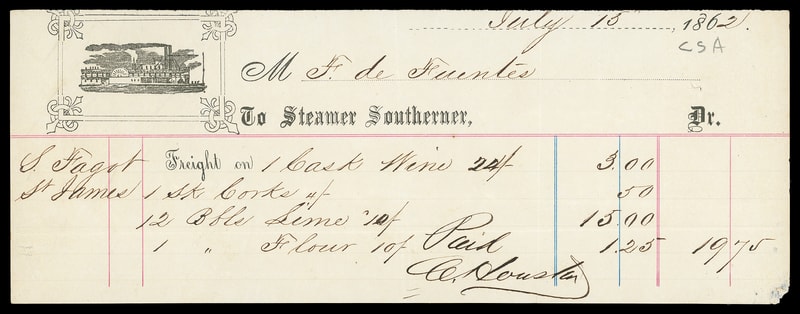 July 15, 1862.
CSA
M F. de Fuentes
To Steamer Southerner, Dr.
S. Fagot Freight on 1 Cask Wine 24/- 3.00
St James 1 Sk Corks 4/- 50
12 Bbls Lime 10/- 15.00
1 " Flour 10/ Paid 1.25 1975
C. Houston